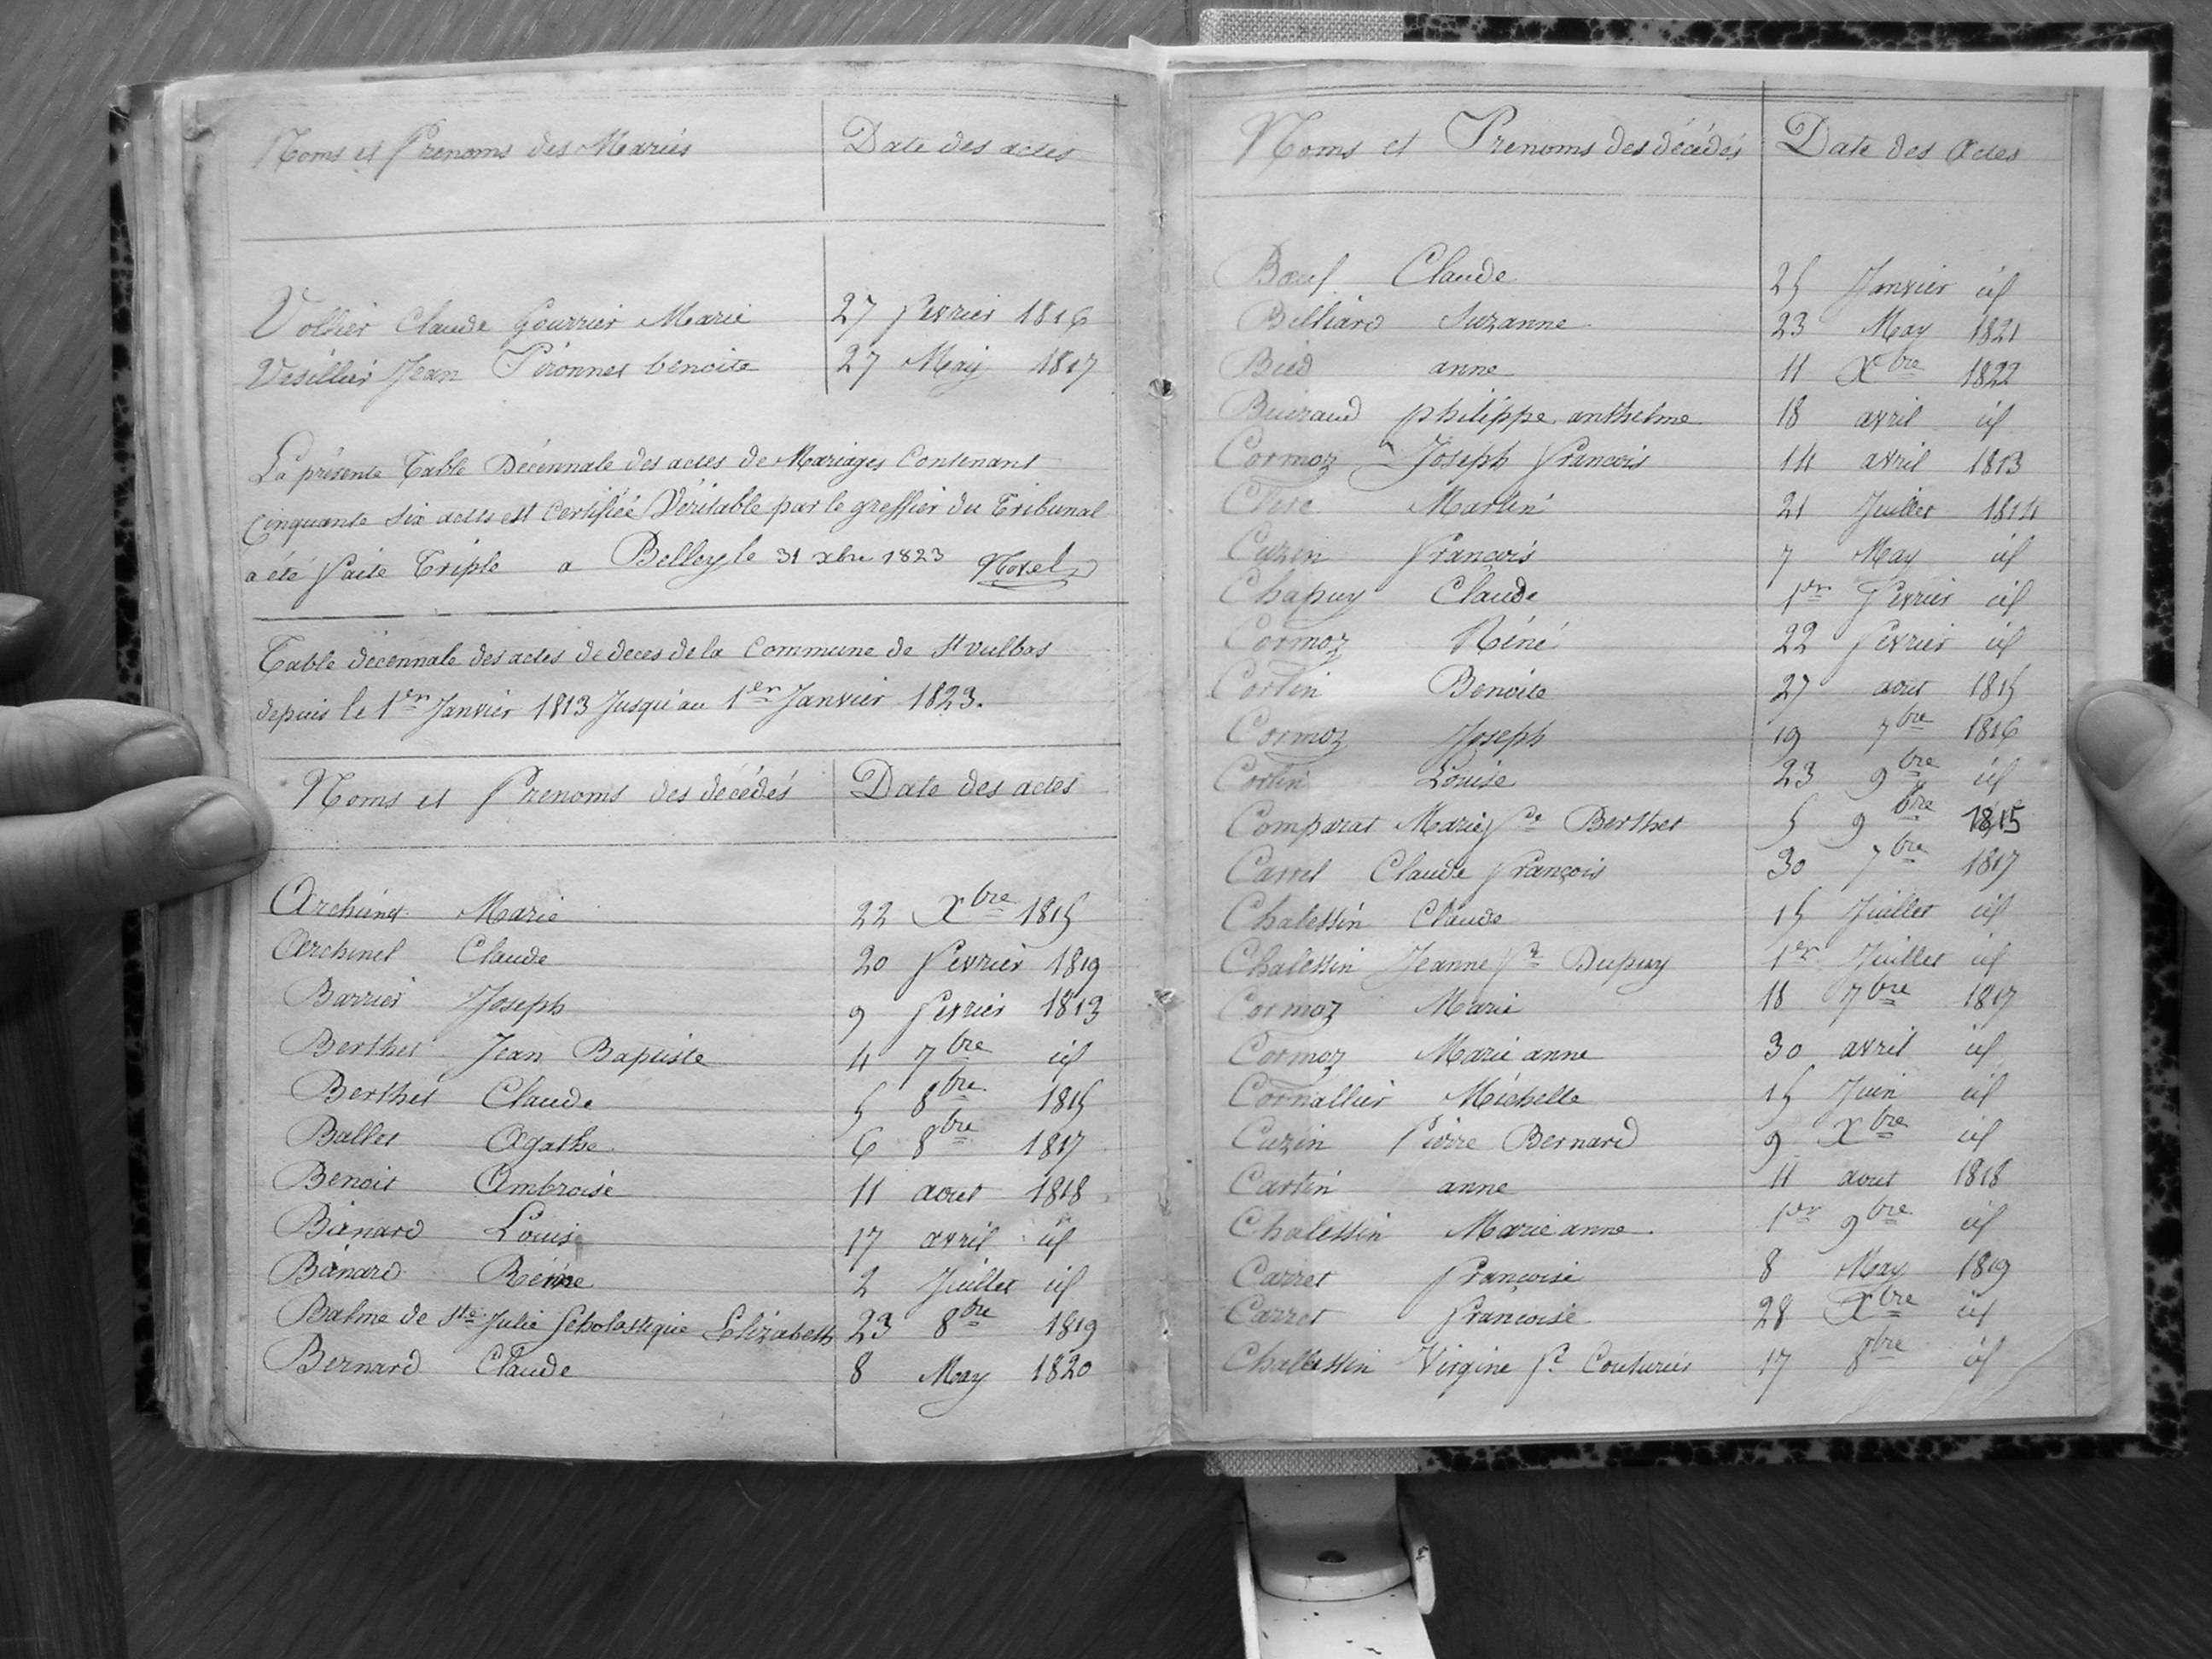 Noms et Prenoms des Mariés Date des actes
Vollier Claude Gourrier Marie 27 fevrier 1816
Vesillier Jean Péronnet benoite 27 Maij 1817
La présente Table Décennale des actes de Mariages Contenant
Cinquante six actes est Certifiée Véritable par le greffier du Tribunal
a été faite Triple a Belley le 31 xbre 1823 Novel
Table décennale des actes de deces de la Commune de St vulbas
depuis le 1er Janvier 1813 Jusqu'au 1er Janvier 1823.
Noms et Prenoms des décédés Date des actes
Archinet Marie 22 Xbre 1815
Archinet Claude 20 fevrier 1819
Barrier Joseph 9 fevrier 1813
Berthet Jean Baptiste 4 7bre id
Berthet Claude 5 8bre 1815
Ballet Agathe 6 8bre 1817
Benoit Ambroise 11 aout 1818
Binard Louise 17 avril id
Binard Reine 2 Juillet id
Balme de Ste Julie Scholastique Elizabeth 23 8bre 1819
Bernard Claude 8 May 1820
Noms et Prenoms des décédés Date des Actes
Bœuf Claude 25 Janvier id
Billiard Suzanne 23 May 1821
Bied anne 11 Xbre 1822
Buiraud philippe anthelme 18 avril id
Cormoz Joseph francois 14 avril 1813
Clere Martin 21 Juillet 1814
Cuzin françois 7 May id
Chapuy Claude 1er fevrier id
Cormoz Réné 22 fevrier id
Cortin Benoite 27 aout 1815
Cormoz Joseph 19 7bre 1816
Cortin Louise 23 9bre id
Comparat Marie fe Berthet 5 9bre 1815
Carrel Claude françois 30 7bre 1817
Chalessin Claude 15 Juillet id
Chalessin Jeanne fe Dupuy 1er Juillet id
Cormoz Marie 18 7bre 1817
Cormoz Marie anne 30 avril id
Cornallier Michelle 15 Juin id
Cuzin Pierre Bernard 9 Xbre id
Cartin anne 11 aout 1818
Chalessin Marie anne 1er 9bre id
Carret françoise 8 May 1819
Carret françoise 28 Xbre id
Challessin Virgine fe Couturier 17 8bre id